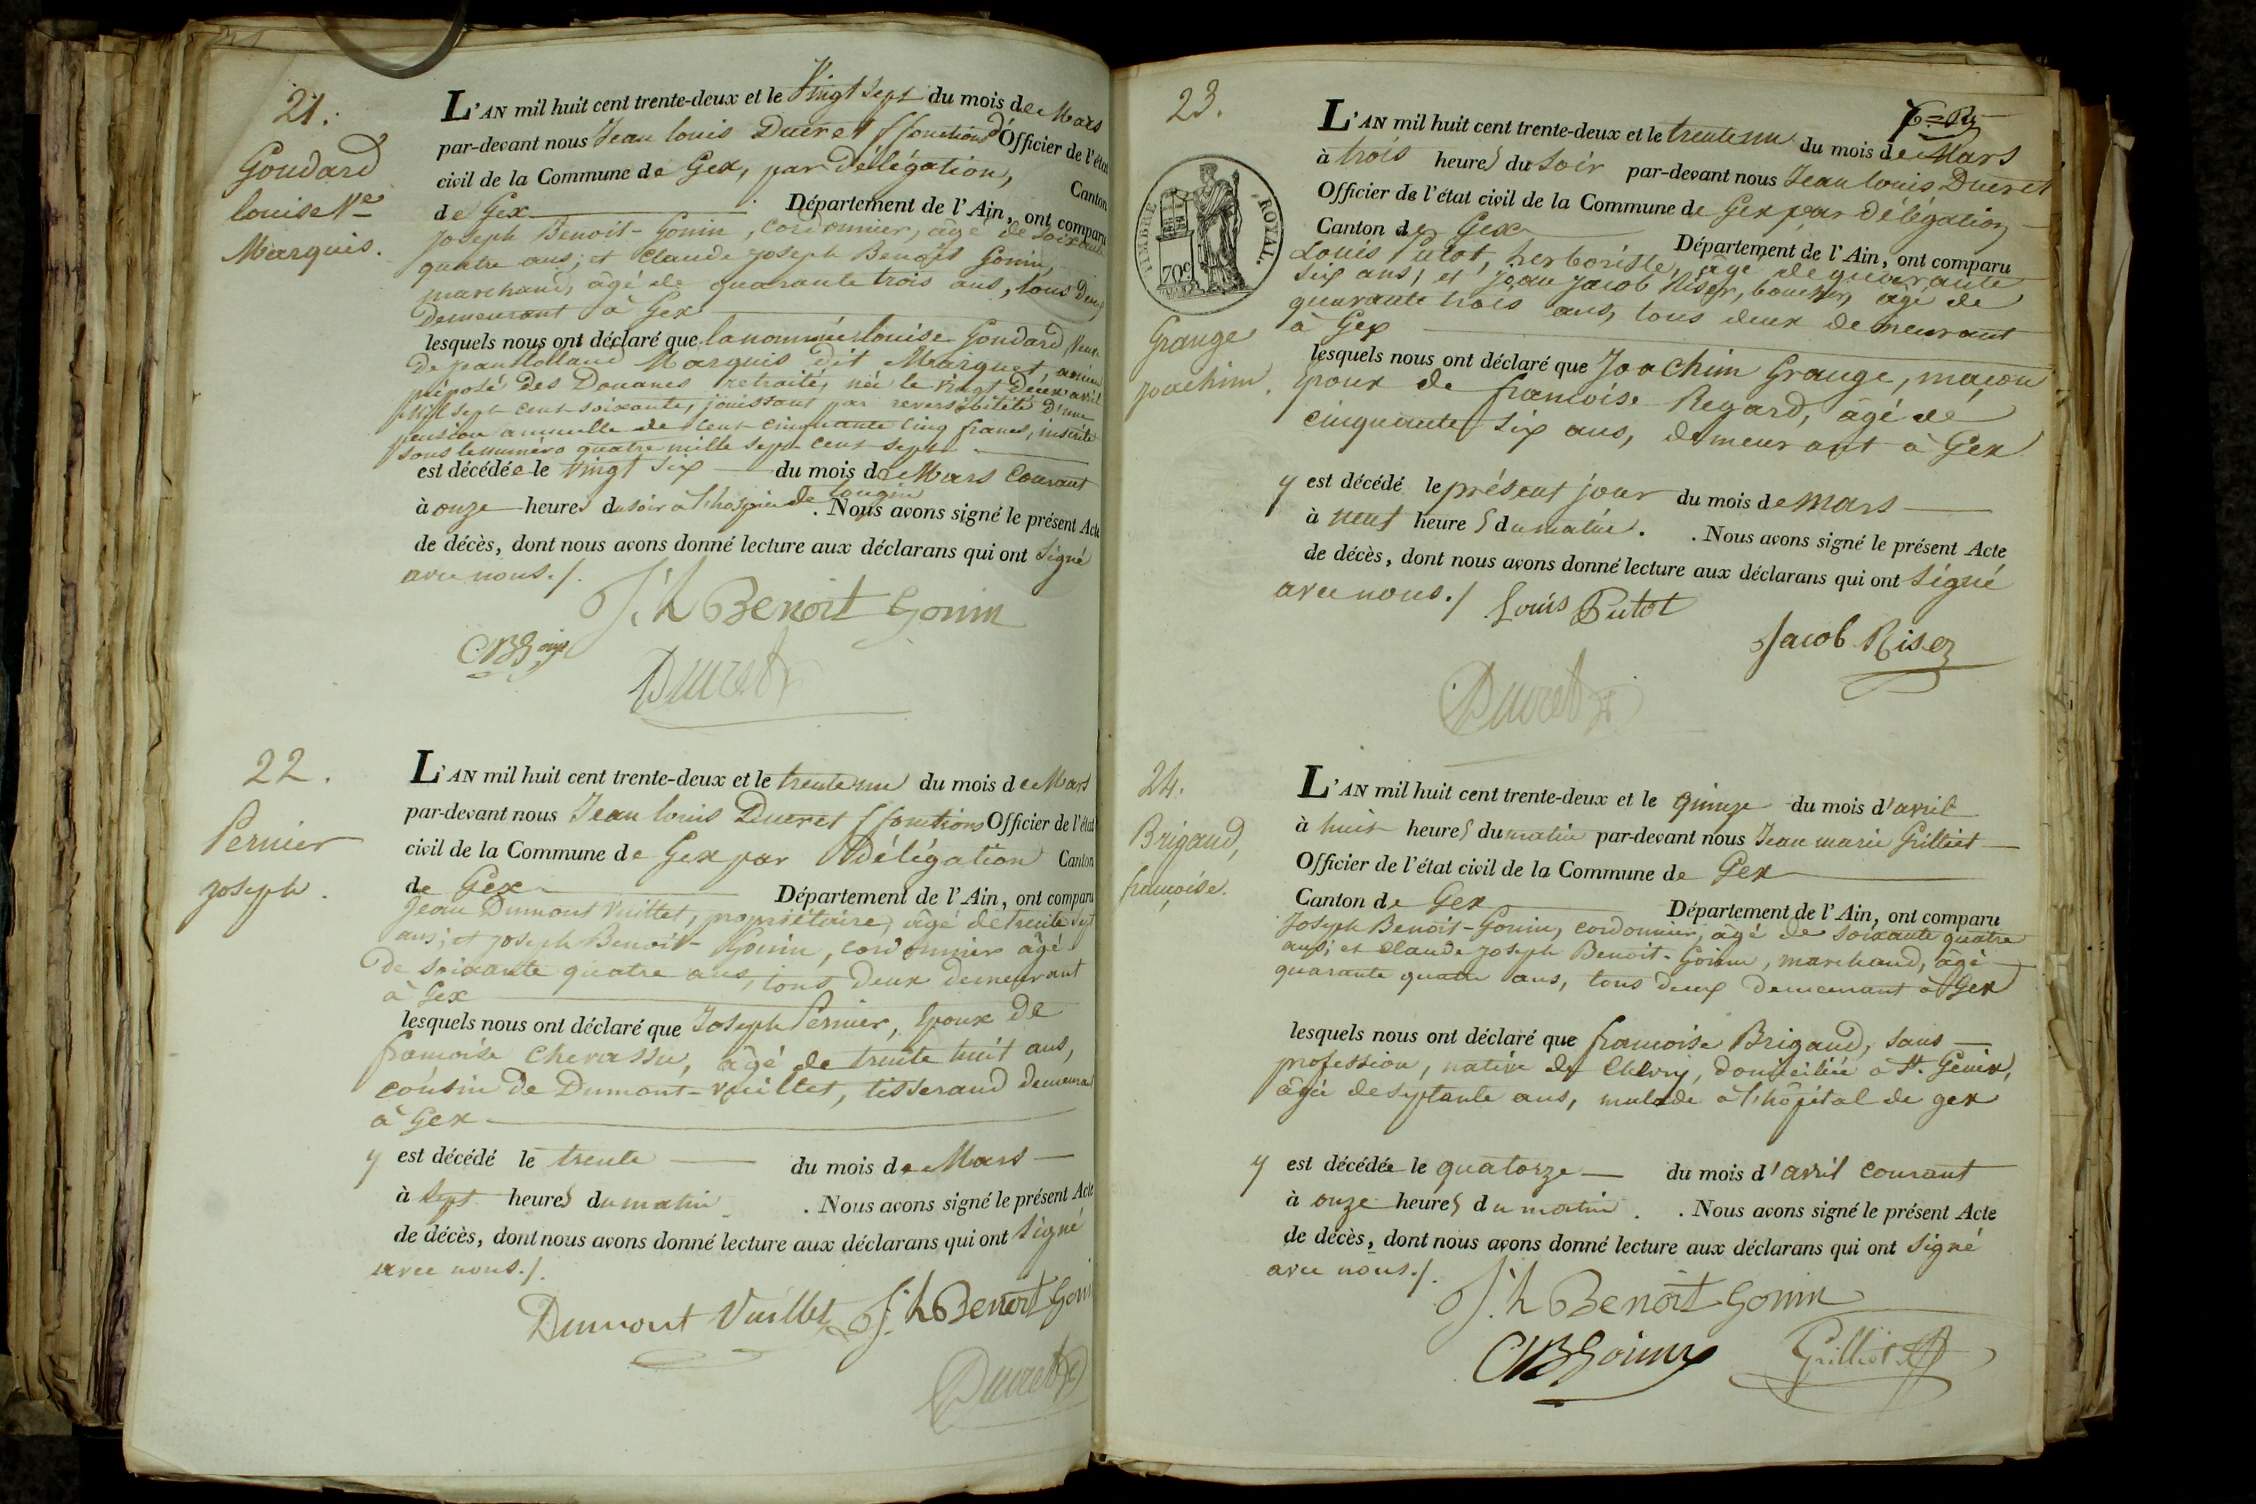 21.
Goudard
louise Ve
Marquis.
L'AN mil huit cent trente-deux et le Vingt sept du mois de Mars
par-devant nous Jean louis Ducret ff fonctions d'Officier de l'état
civil de la Commune de Gex, par délégation, Canton
de Gex Département de l'Ain, ont comparu
Joseph Benoit-Gonin, cordonnier, âgé de soixante
quatre ans; et Claude Joseph Benoit Gonin,
marchand, âgé de quarante trois ans, tous deux
demeurant à Gex
lesquels nous ont déclaré que la nommée louise Goudard, Veuve
de jean Marquis dit Marquet, ancien
préposé des Douanes retraité, née le vingt deux avril
Mil sept cent soixante, jouissant par reversibilité d'une
pension annuelle de cent cinquante cinq francs, inscrite
sous le numéro quatre mille sept cent sept
est décédée le vingt six du mois de Mars courant
à onze heures du soir à l'hospice de
. Nous avons signé le présent Acte
de décès, dont nous avons donné lecture aux déclarans qui ont signé
avec nous./.
J.h Benoit Gonin
CBGonin
Ducret
22.
Pernier
joseph.
L'AN mil huit cent trente-deux et le trente un du mois de Mars
par-devant nous Jean louis Ducret ff fonctions Officier de l'état
civil de la Commune de Gex par délégation Canton
de Gex Département de l'Ain, ont comparu
Jean Dumont Vuillet, propriétaire, âgé de trente sept
ans; et joseph Benoit-Gonin, cordonnier âgé
de soixante quatre ans, tous deux demeurant
à Gex
lesquels nous ont déclaré que Joseph Pernier, époux de
françoise Chevassu, âgé de trente huit ans,
cousin de Dumont-Vuillet, tisserand demeurant
à Gex
y est décédé le trente du mois de Mars
à sept heures du matin . Nous avons signé le présent Acte
de décès, dont nous avons donné lecture aux déclarans qui ont signé
avec nous./.
Dumont Vuillet J.h Benoit Gonin
Ducret
23.
TIMBRE ROYAL.
70c
Grange
joachim.
L'AN mil huit cent trente-deux et le trente un du mois de Mars
à trois heures du soir par-devant nous Jean louis Ducret
Officier de l'état civil de la Commune de Gex par délégation
Canton de Gex Département de l'Ain, ont comparu
Louis Putot, herboriste, âgé de quarante
six ans; et jean jacob Riser, boucher, âgé de
quarante trois ans, tous deux demeurant
à Gex
lesquels nous ont déclaré que Joachim Grange, maçon
époux de françoise Regard, âgé de
cinquante six ans, demeurant à Gex
y est décédé le présent jour du mois de mars
à neuf heures du matin. . Nous avons signé le présent Acte
de décès, dont nous avons donné lecture aux déclarans qui ont signé
avec nous./
Louis Putot
Jacob Riser
Ducret
24.
Brigand,
françoise.
L'AN mil huit cent trente-deux et le quinze du mois d'avril
à huit heures du matin par-devant nous Jean marie Grilliet
Officier de l'état civil de la Commune de Gex
Canton de Gex Département de l'Ain, ont comparu
Joseph Benoit-Gonin, cordonnier, âgé de soixante quatre
ans; et Claude Joseph Benoit-Gonin, marchand, âgé
quarante quatre ans, tous deux demeurant à Gex
lesquels nous ont déclaré que françoise Brigand, sans
profession, native de Chevry, domiciliée à St. Genix,
âgée de septante ans, malade à l'hôpital de gex
y est décédée le quatorze du mois d'avril courant
à onze heures du matin. . Nous avons signé le présent Acte
de décès, dont nous avons donné lecture aux déclarans qui ont signé
avec nous./.
J.h Benoit Gonin
CBGonin Grilliet